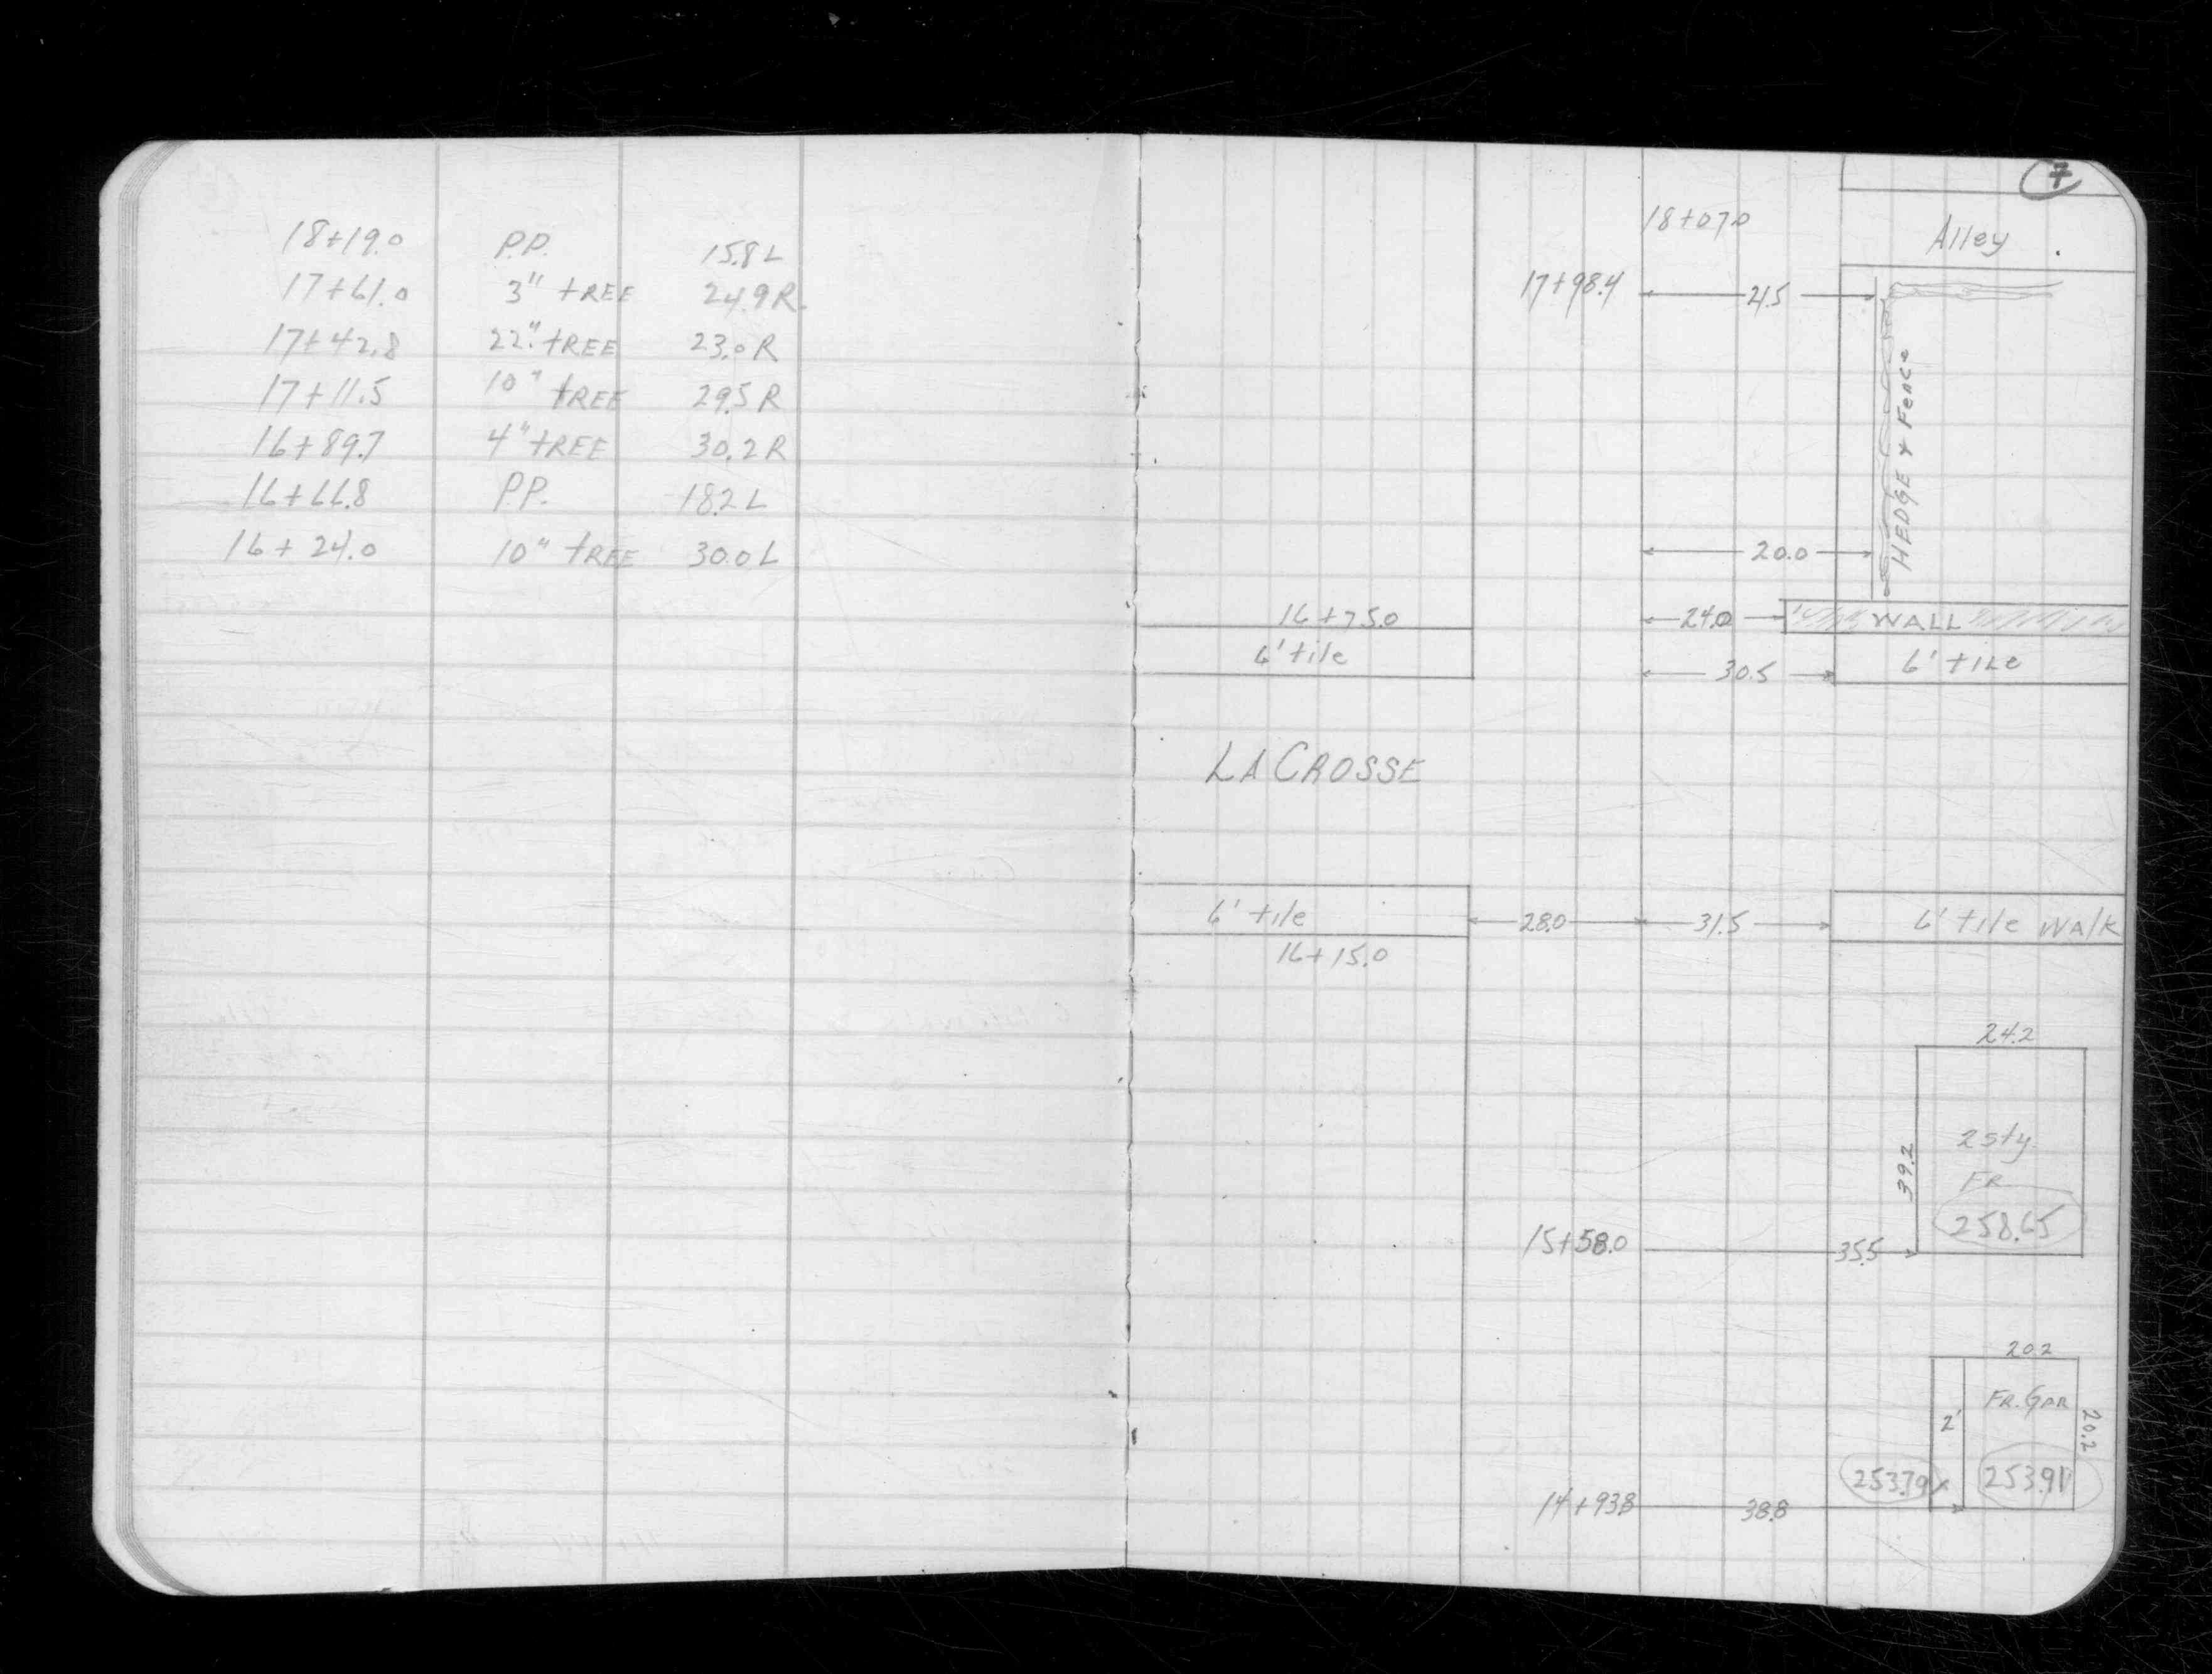 18+19.0 P.P. 15.8 L
17+61.0 3" tREE 24.9 R.
17+42.8 22" tREE 23.0 R
17+11.5 10" tREE 29.5 R
16+89.7 4" tREE 30.2 R
16+66.8 P.P. 18.2 L
16+24.0 10" tREE 30.0 L
7
18+07.0
Alley
17+98.4 21.5
HEDGE & Fence
20.0
16+75.0 24.0 WALL
6' tile 30.5 6' tile
LA CROSSE
6' tile 28.0 31.5 6' tile Walk
16+15.0
24.2
39.2
2 sty.
FR
258.65
15+58.0 35.5
20.2
FR. GAR
2'
20.2
253.79 x 253.91
14+93.8 38.8